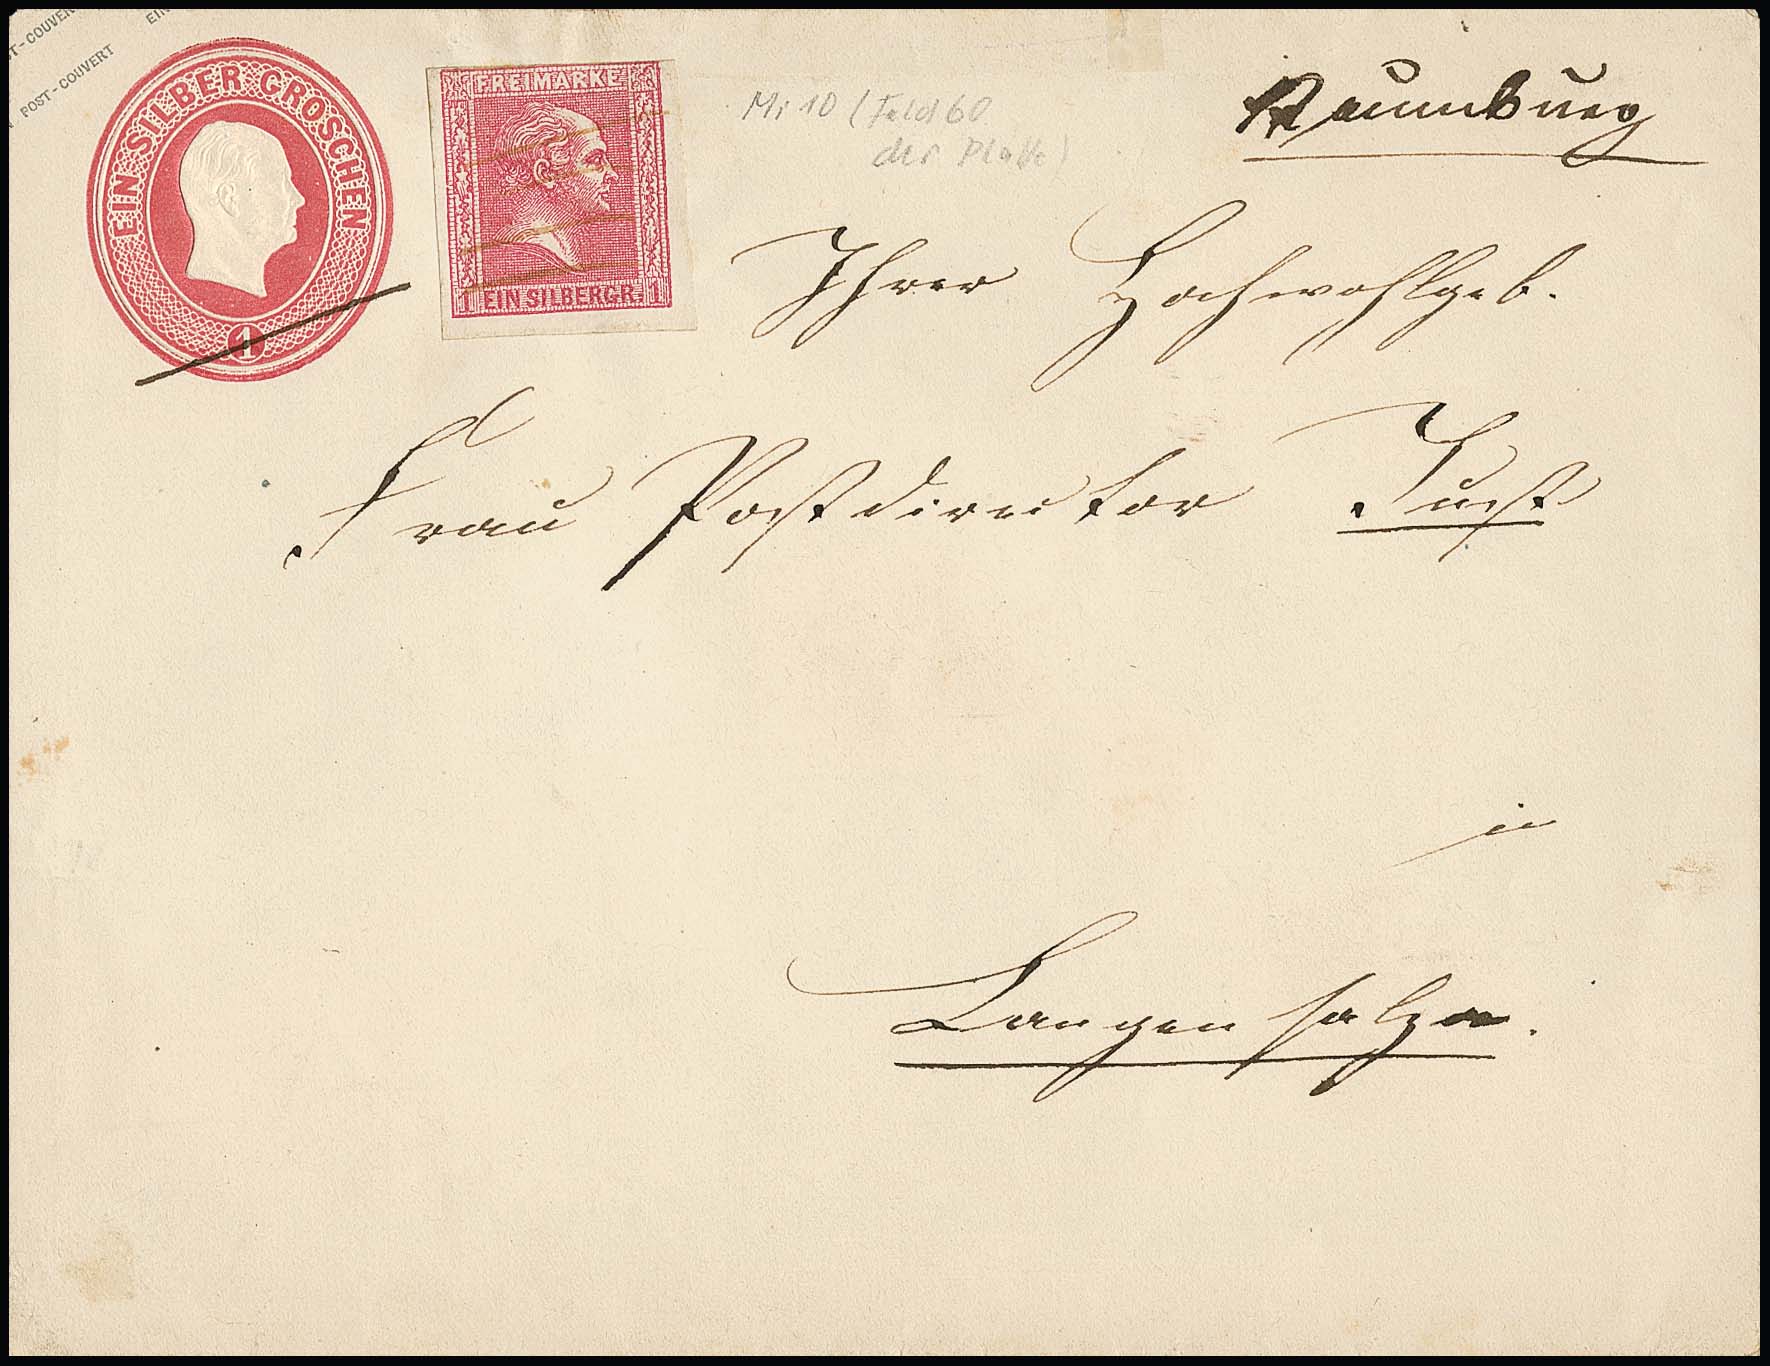 ST-COUVERT
EIN
POST-COUVERT
EIN SILBER GROSCHEN
1
FREIMARKE
1 EIN SILBERGR. 1
Mi 10 (Feld 60
der Platte)
Naumburg
Ihrer Hochwohlgeb.
Frau Postdirector Just
in
Langensalza.